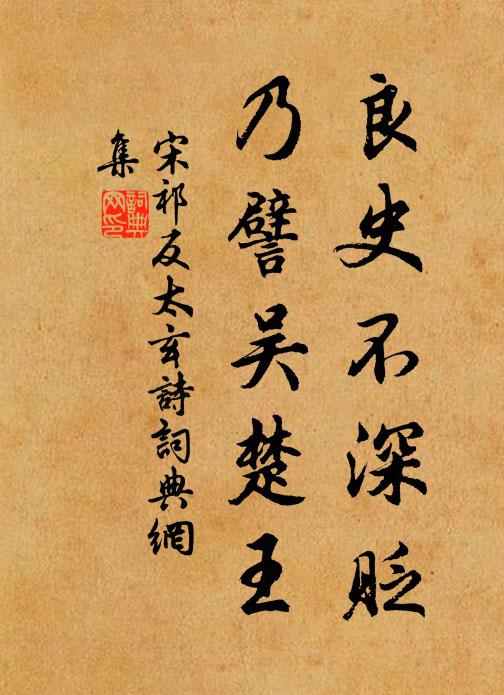 良史不深貶
乃譬吴楚王
宋祁反太玄詩詞典網
集
詞典
网印